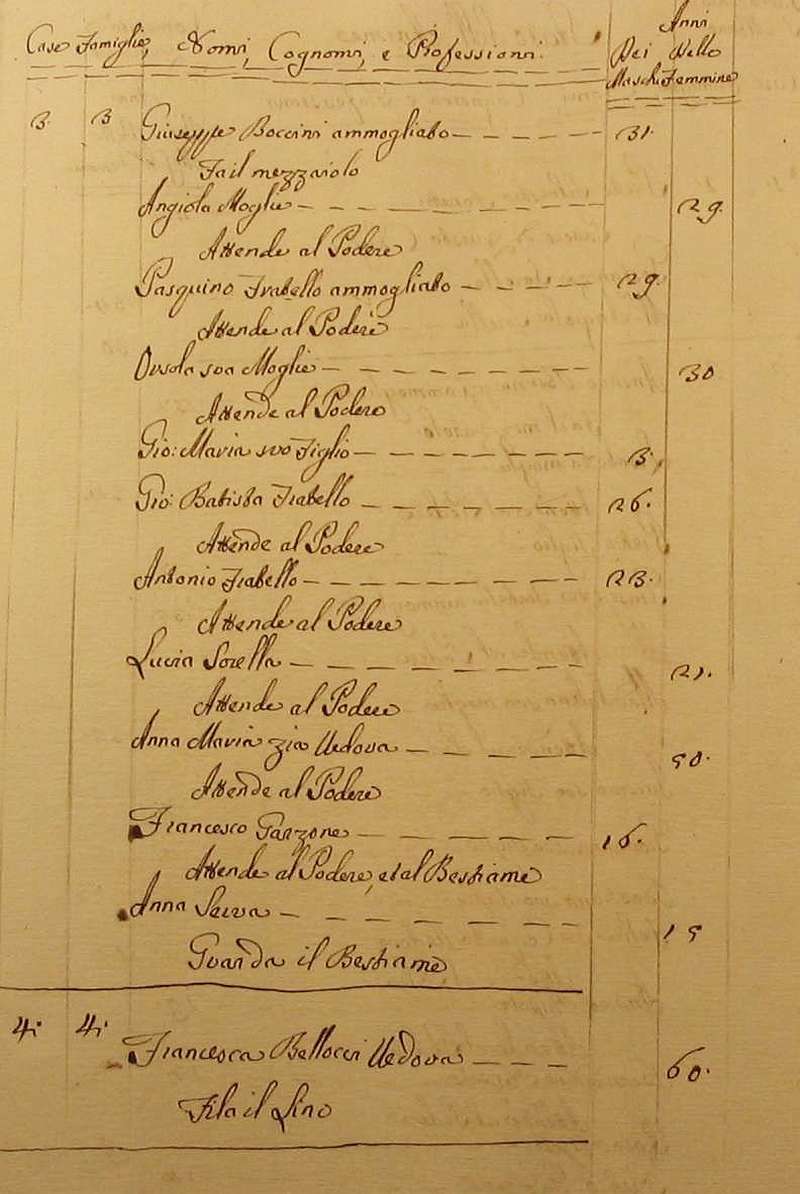 Anni
Case Famiglie, Nomi, Cognomi, e Professioni. Dei Delle
Maschi Femmine
3. 3 Giuseppe Boccini ammogliato 31.
Fa il mezzaiolo
Angiola Moglie 29.
Attende al Podere
Pasquino Fratello ammogliato 29.
Attende al Podere
Orsola sua Moglie 30
Attende al Podere
Gio: Maria suo Figlio 3.
Gio: Batista Fratello 26.
Attende al Podere
Antonio Fratello 23.
Attende al Podere
Lucia Sorella 21.
Attende al Podere
Anna Maria zia Vedova 50.
Attende al Podere
Francesco Garzone 16.
Attende al Podere, et al Bestiame
Anna Serva 19
Guarda il Bestiame
4. 4. Francesca Bellocci Vedova 60.
Fila il Lino